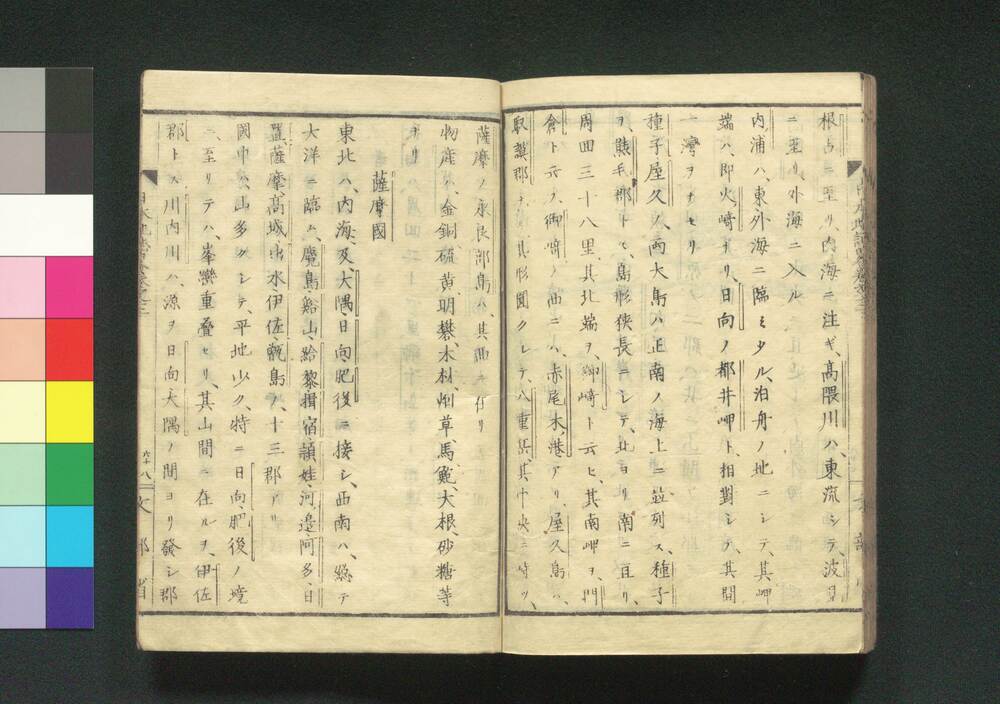 根占ニ至リ、内海ニ注ギ、高隈川ハ、東流シテ、波見
ニ至リ外海ニ入ル
内ノ浦ハ、東外海ニ臨ミタル、泊舟ノ地ニシテ、其岬
端ハ、即火崎ナリ、日向ノ都井岬ト、相對シテ、其間
一灣ヲナセリ
種子屋久ノ、両大島ハ、正南ノ海上ニ並列ス、種子
ヲ、熊毛郡トス、島形狹長ニシテ、北ヨリ南ニ亘リ、
周回三十八里、其北端ヲ、御崎ト云ヒ、其南岬ヲ、門
倉ト云フ、御崎ノ西ニハ、赤尾木港アリ、屋久島ハ、
馭謨郡ナリ、其形圓クシテ、八重岳、其中央ニ峙ツ、
薩摩ノ永良部島ハ、其西ニ在リ
物産ハ、金銅硫黄、明礬、木材、烟草、馬、氈、大根、砂糖等
ナリ
薩摩國
東北ハ、内海、及大隅、日向、肥後ニ接シ、西南ハ、總テ
大洋ニ臨ム、麑島、谿山、給黎、揖宿、頴娃、河邉、阿多、日
置、薩摩、高城、出水、伊佐、甑島ノ、十三郡アリ
國中ハ、山多クシテ、平地少ク、特ニ日向、肥後ノ境
ニ、至リテハ、峯巒重疊セリ、其山間ニ在ルヲ、伊佐
郡トス、川内川ハ、源ヲ日向、大隅ノ間ヨリ發シ、郡
六十八
文部省